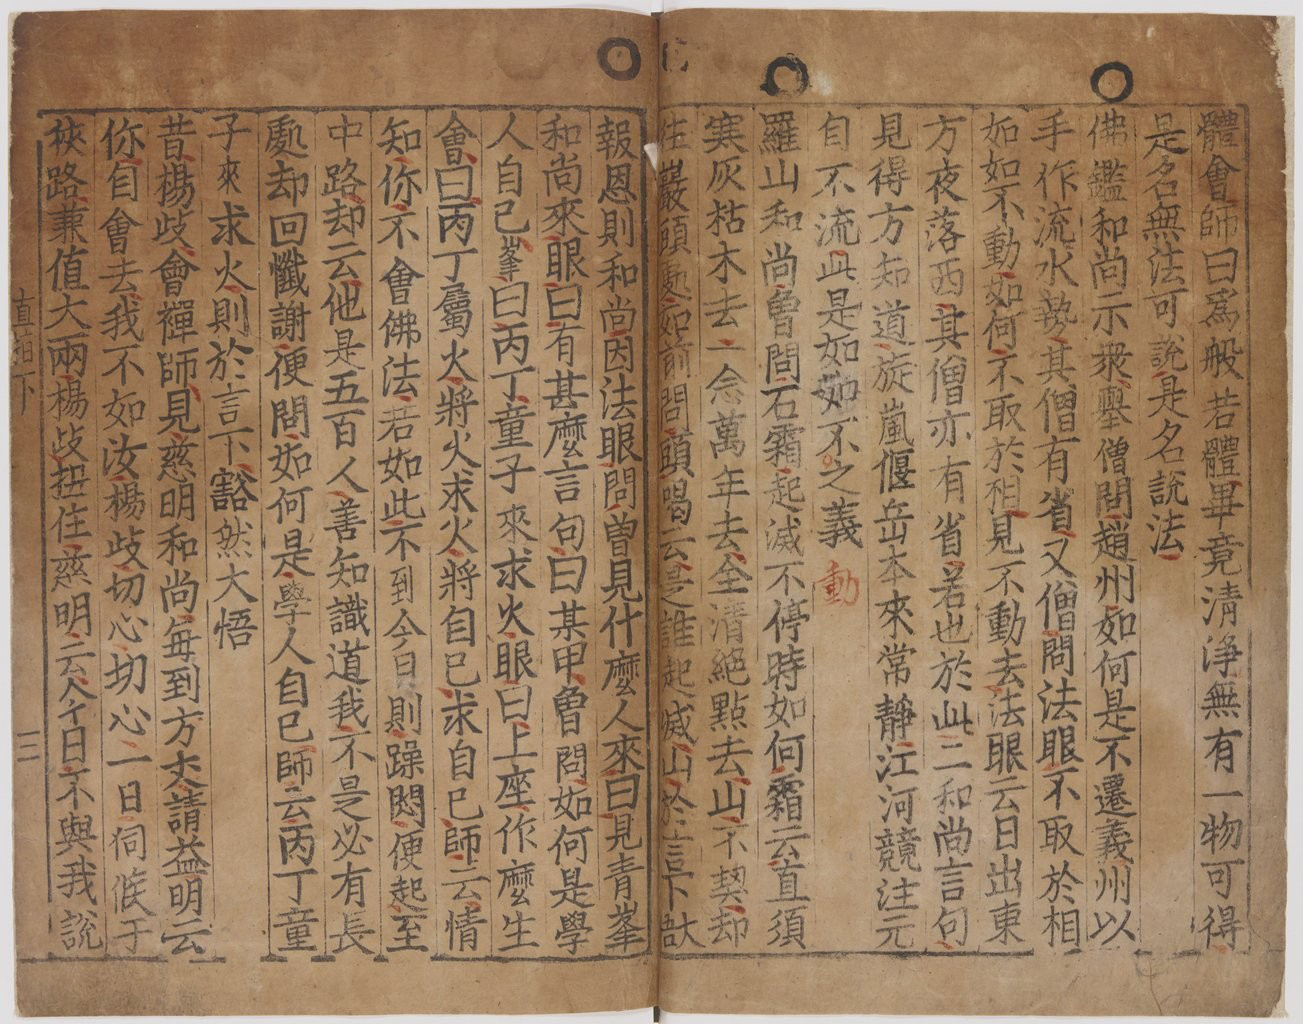 體會師曰爲般若體畢竟清淨無有一物可得
是名無法可說是名說法
佛鑑和尚示衆擧僧問趙州如何是不遷義州以
手作流水勢其僧有省又僧問法眼不取於相
如如不動如何不取於相見不動去法眼云日出東
方夜落西其僧亦有省若也於此二和尚言句
見得方知道旋嵐偃岳本來常靜江河競注元
自不流此是如如不之義 動
羅山和尚曾問石霜起滅不停時如何霜云直須
寒灰枯木去一念萬年去全清絕點去山不契却
往巖頭處如前問頭喝云是誰起滅山於言下
報恩則和尚因法眼問曾見什麼人來曰見靑峯
和尚來眼曰有甚麼言句曰某甲曾問如何是學
人自己峯曰丙丁童子來求火眼曰上座作麼生
會曰丙丁屬火將火求火將自己求自己師云情
知你不會佛法若如此不到今日則躁悶便起至
中路却云他是五百人善知識道我不是必有長
處却回懺謝便問如何是學人自己師云丙丁童
子來求火則於言下豁然大悟
昔楊歧會禪師見慈明和尚每到方丈請益明云
你自會去我不如汝楊歧切心切心一日伺候于
狹路兼值大雨楊歧扭住慈明云今日不與我說
直指下